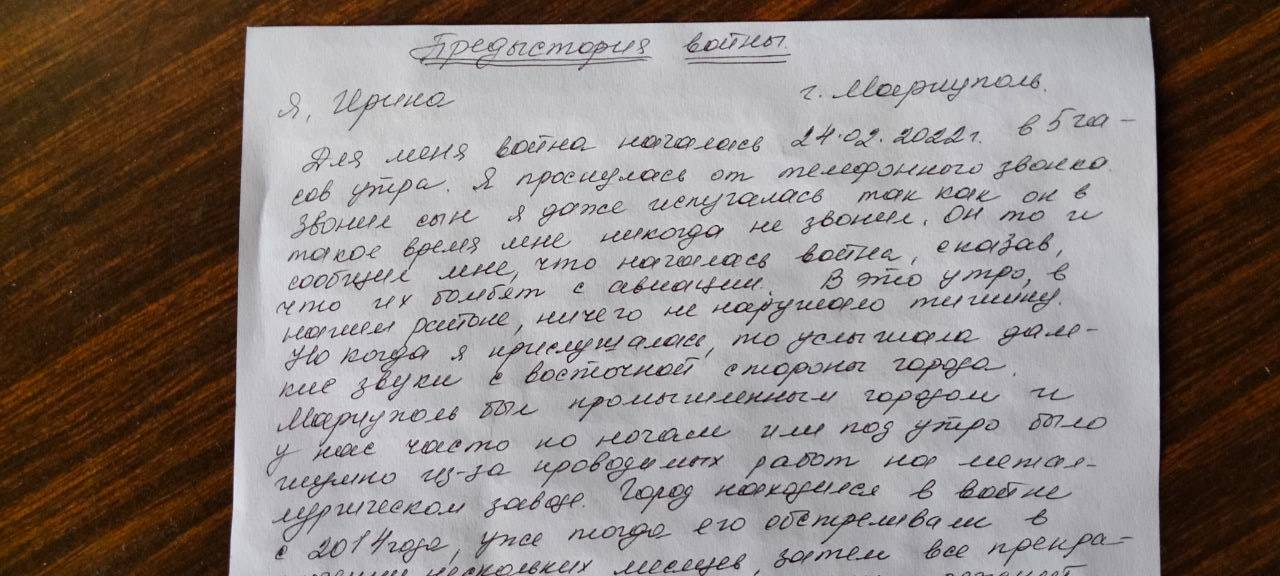 Предыстория войны.
Я, Ирина г. Мариуполь.
Для меня война началась 24.02.2022г. в 5 ча-
сов утра. Я проснулась от телефонного звонка.
Звонил сын я даже испугалась так как он в
такое время мне никогда не звонил. Он то и
сообщил мне, что началась война, сказав,
что их бомбят с авиации. В это утро, в
нашем районе, ничего не нарушало тишину.
Но когда я прислушалась, то услышала дале-
кие звуки с восточной стороны города.
Мариуполь был промышленным городом и
у нас часто по ночам или под утро было
шумно из-за проводимых работ на метал-
лургическом заводе. Город находился в войне
с 2014 года, уже тогда его обстреливали в
нескольких месяцев, затем все прекра-